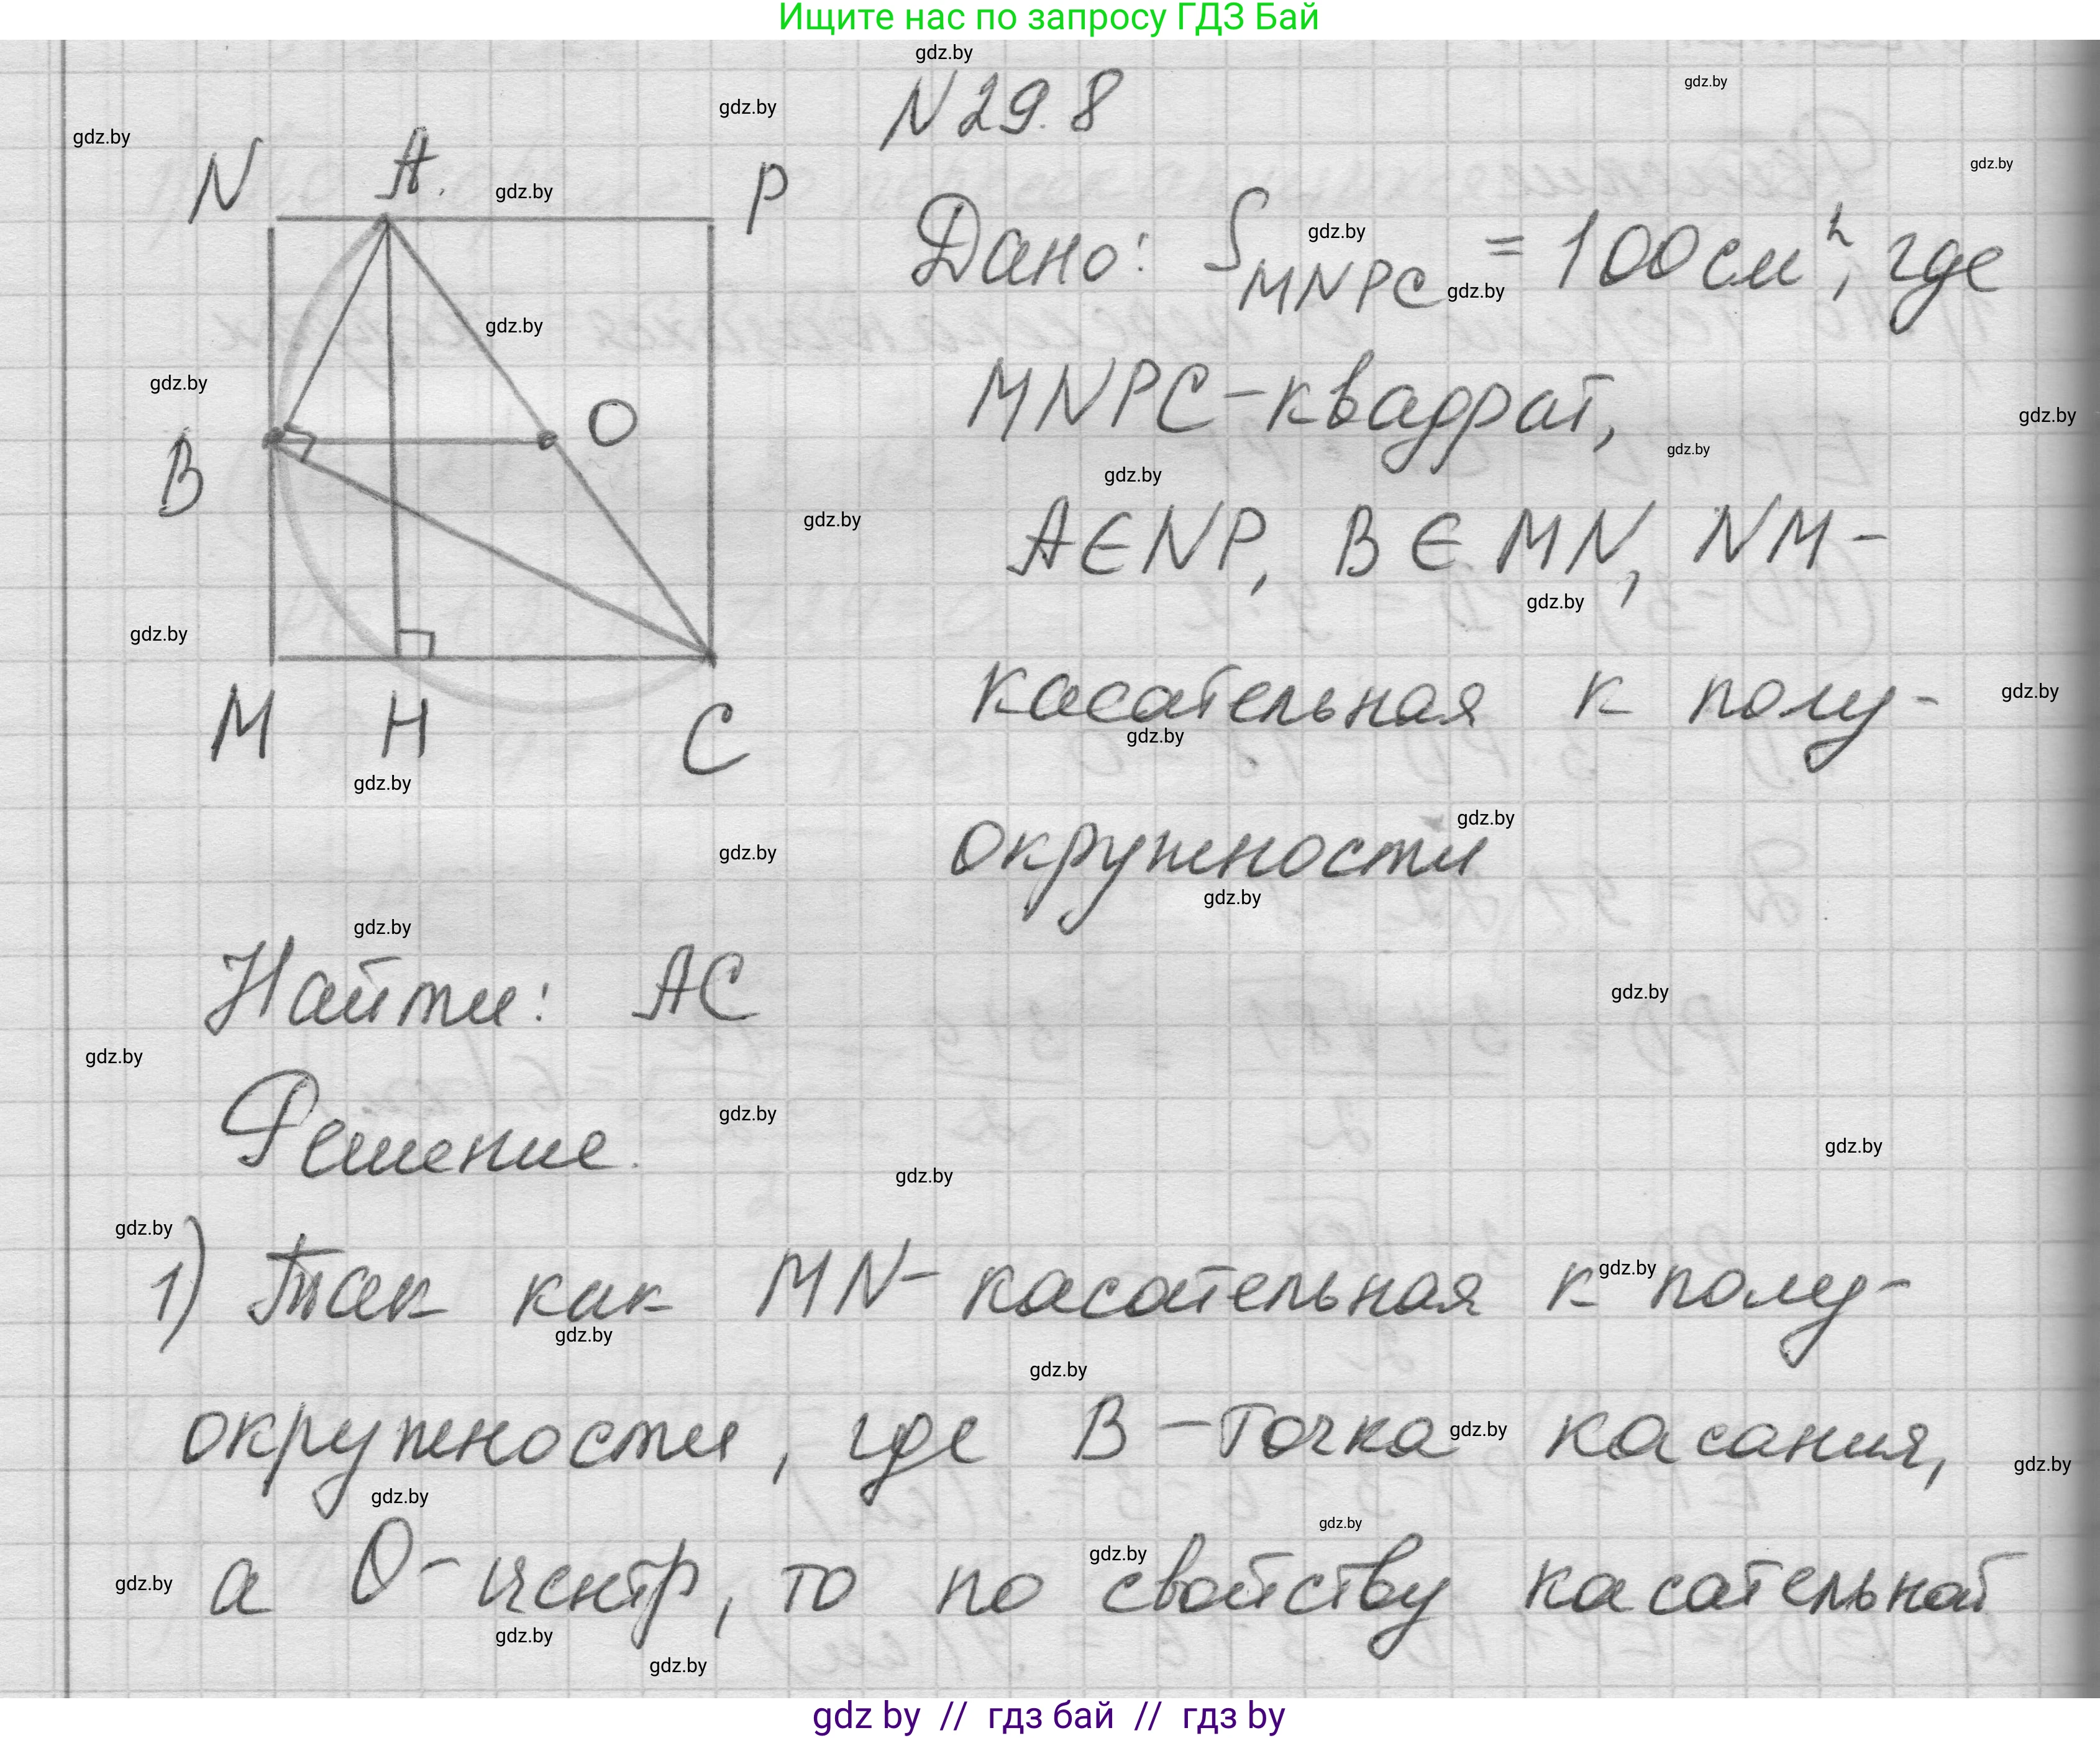 Ищите нас по запросу ГДЗ Бай
N 29.8
N A. P
Дано: S MNPC = 100 см², где
MNPC - квадрат,
B O
A ∈ NP, B ∈ MN, NM -
касательная к полу-
M H C
окружности
Найти: AC
Решение.
1) Так как MN - касательная к полу-
окружности, где B - точка касания,
а O - центр, то по свойству касательной
gdz by // гдз бай // гдз by
gdz.by